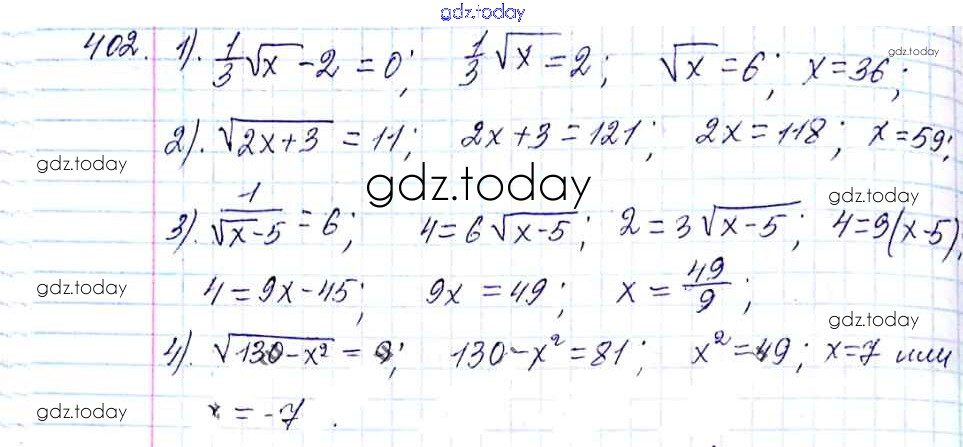 gdz.today
402. 1). 1/3 √x - 2 = 0; 1/3 √x = 2; √x = 6; x = 36; gdz.today
2). √(2x+3) = 11; 2x+3 = 121; 2x = 118; x = 59;
gdz.today gdz.today gdz.today
3). 1/(√x-5) = 6; 4 = 6√(x-5); 2 = 3√(x-5); 4 = 9(x-5);
gdz.today 4 = 9x - 45; 9x = 49; x = 49/9;
gdz.today
4). √(130-x²) = 9; 130-x² = 81; x² = 49; x = 7 или
gdz.today x = -7.